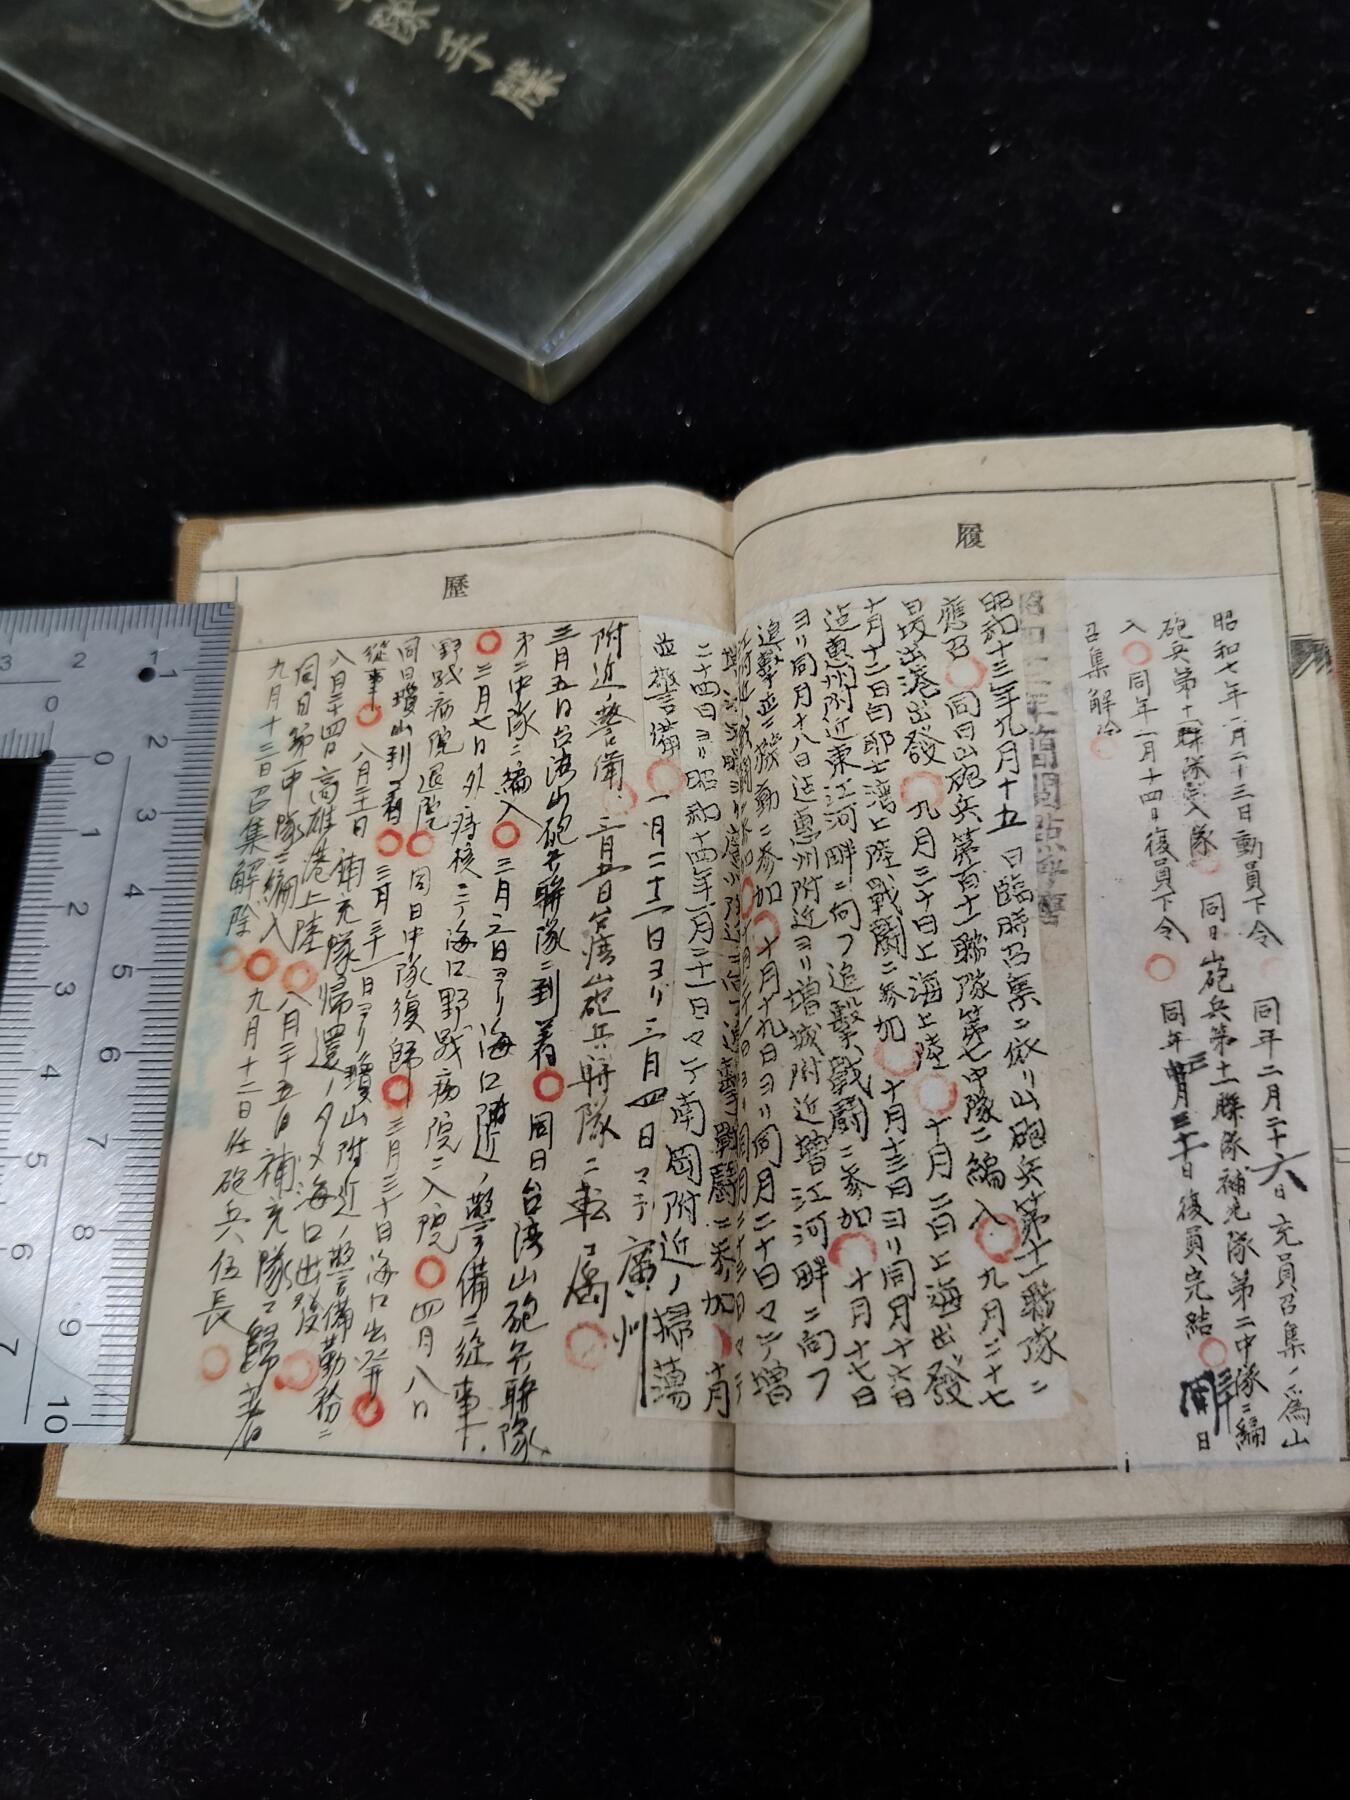 隊手牒
履
歷
昭和七年二月二十三日動員下令 同年二月二十六日 充員召集ノ爲山
砲兵第十一聯隊應召入隊 同日山砲兵第十一聯隊補充隊第二中隊ニ編
入 同年 月十四日復員下令 同年 月三十日復員完結 同 日
召集解除
昭和十三年九月十五日臨時召集ニ依リ山砲兵第十一聯隊ニ
應召 同日山砲兵第百十一聯隊第七中隊ニ編入 九月二十七
日坂出港出發 九月三十日上海上陸 十月二日上海出發
十月十二日白耶士灣上陸戰鬪ニ參加 十月十三日ヨリ同月十六日
迄惠州附近東江河畔ニ向フ追擊戰鬪ニ參加 十月十七日
ヨリ同月十八日迄惠州附近ヨリ增城附近增江河畔ニ向フ
追擊並ニ 動ニ參加 十月十九日ヨリ同月二十日マデ增
追擊戰鬪ニ參加 十月
二十四日ヨリ昭和十四年一月二十一日マデ南岡附近ノ掃蕩
並警備 一月二十二日ヨリ三月四日マデ廣州
附近ノ警備、三月五日台湾山砲兵聯隊ニ転属
三月五日台湾山砲兵聯隊ニ到着 同日台湾山砲兵聯隊
第二中隊ニ編入 三月六日ヨリ海口附近ノ警備ニ從事、
三月七日外痔核ニテ海口野戦病院ニ入院 四月八日
野戦病院退院 同日中隊復歸 三月三十日海口出発
同日瓊山到着 三月三十一日ヨリ瓊山附近ノ警備勤務ニ
從事 八月二十日補充隊帰還ノタメ海口出發
八月二十四日高雄港上陸 八月二十五日補充隊ニ歸着
同日第一中隊ニ編入 九月十二日任砲兵伍長
九月十三日召集解除